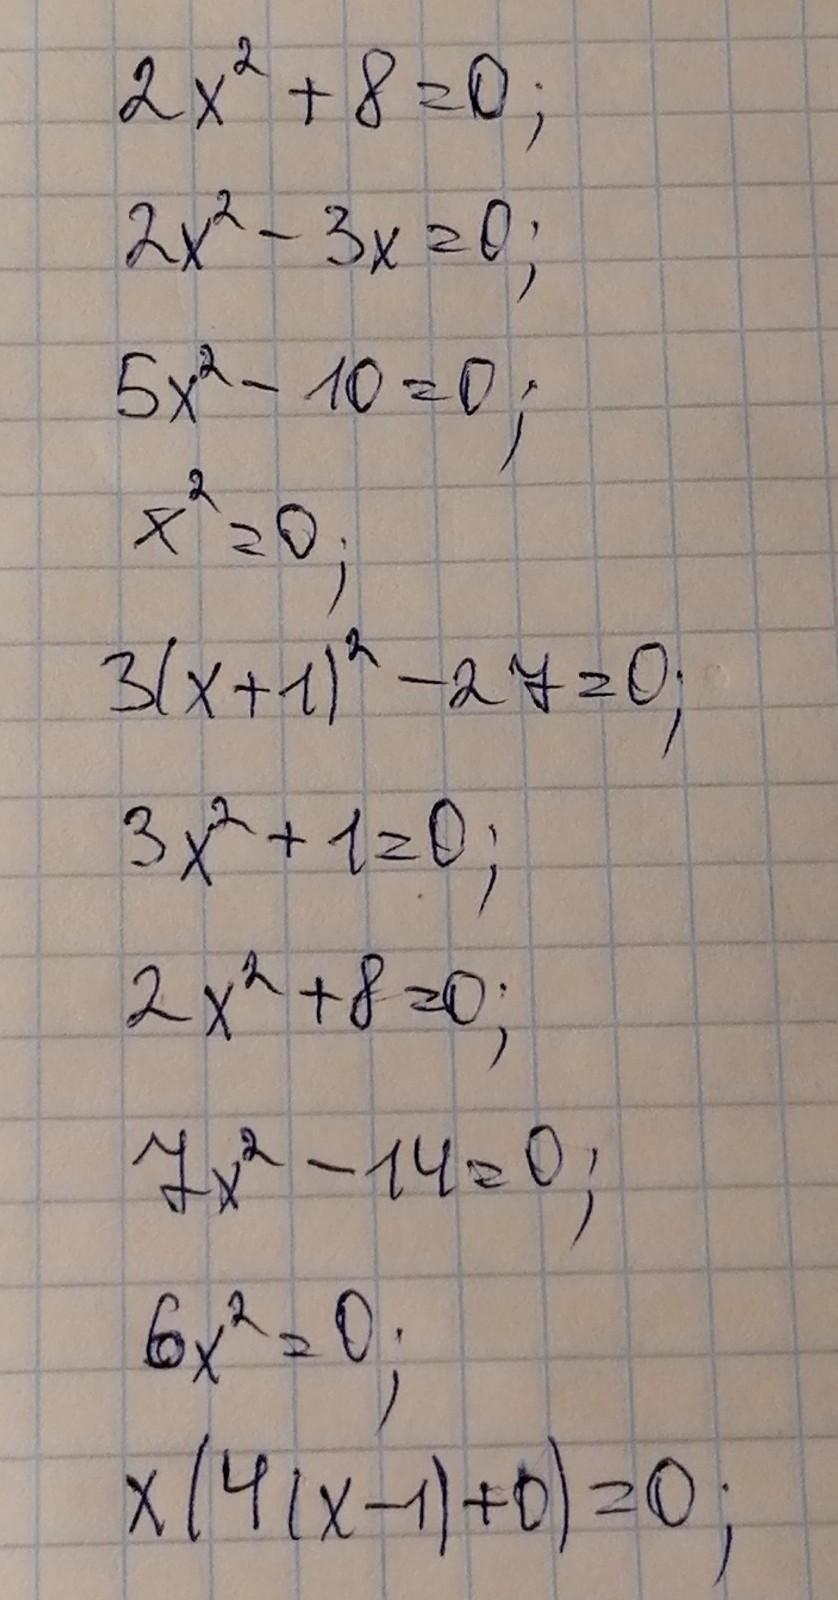 2x² + 8 = 0;
2x² - 3x = 0;
5x² - 10 = 0;
x² = 0;
3(x+1)² - 27 = 0;
3x² + 1 = 0;
2x² + 8 = 0;
7x² - 14 = 0;
6x² = 0;
x(4(x-1)+0) = 0;